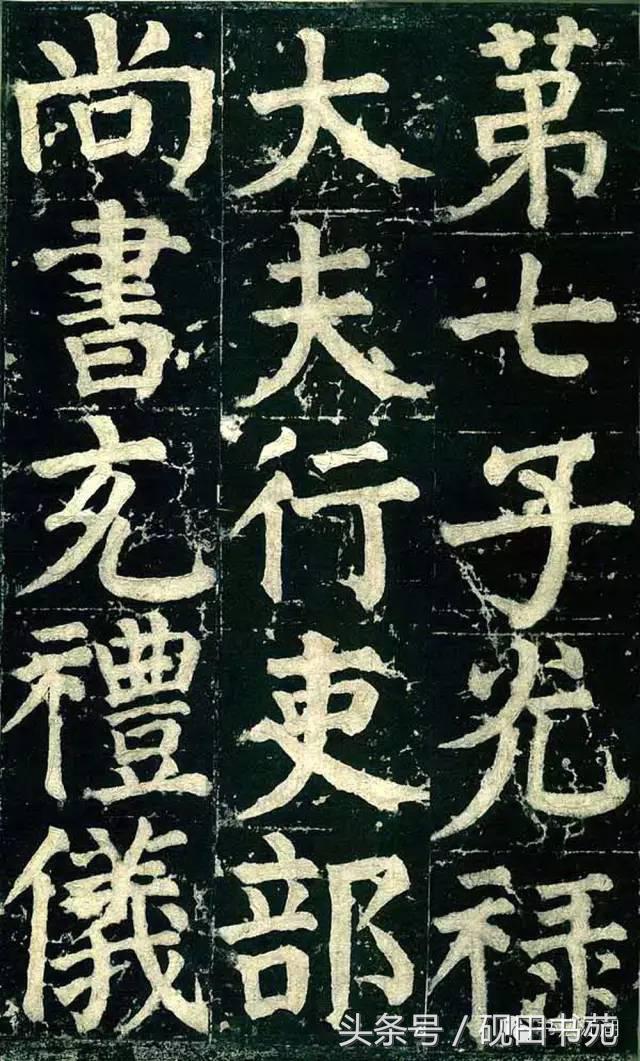 第七子光禄
大夫行吏部
尚書充禮儀
头条号／砚田书苑